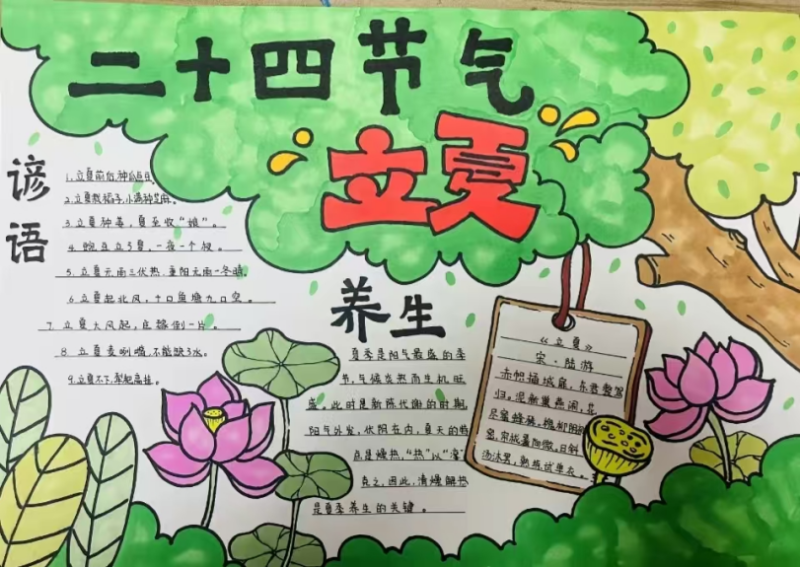 二十四节气
立夏
谚语
1.立夏前后,种瓜点豆。
2.立夏栽稻子,小满种芝麻。
3.立夏种姜,夏至收“娘”。
4.豌豆立了夏,一夜一个杈。
5.立夏无雨三伏热,重阳无雨一冬晴。
6.立夏起北风,十口鱼塘九口空。
7.立夏大风起,庄稼倒一片。
8.立夏麦咧嘴,不能缺了水。
9.立夏不下,犁耙高挂。
养生
夏季是阳气最盛的季
节,气候炎热而生机旺
盛。此时是新陈代谢的时期,
阳气外发,伏阴在内,夏天的特
点是燥热,“热”以“凉”
克之,因此,清燥解热
是夏季养生的关键。
《立夏》
宋·陆游
赤帜插城扉,东君整驾
归。泥新巢燕闹,花
尽蜜蜂稀。槐柳阴初
密,帘栊暑尚微。日斜
汤沐罢,熟练试单衣。